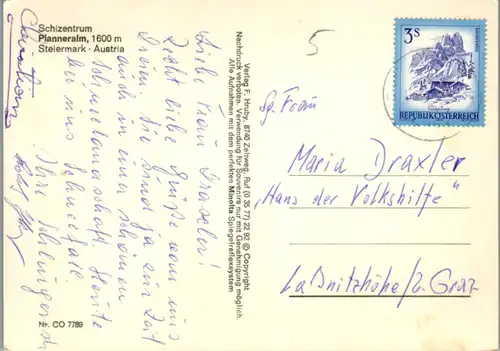 Schizentrum
Planneralm, 1600 m
Steiermark · Austria
5
3 S
REPUBLIK ÖSTERREICH
Liebe Frau Draxler!
Recht liebe Grüße von uns
Dreien. Sie sind ja zur Zeit
auch in einer schönen
Schneelandschaft. Heute
bei uns Schneefall
Ihre
Christiane
Nr. CO 7789
Verlag F. Hruby, 8740 Zeltweg, Ruf (0 35 77) 22 92 © Copyright
Nachdruck verboten. Verwendung für Souvenirs nur mit Genehmigung möglich.
Alle Aufnahmen mit dem perfekten Minolta Spiegelreflexsystem
Sg. Frau
Maria Draxler
"Haus der Volkshilfe"
Laßnitzhöhe/b. Graz